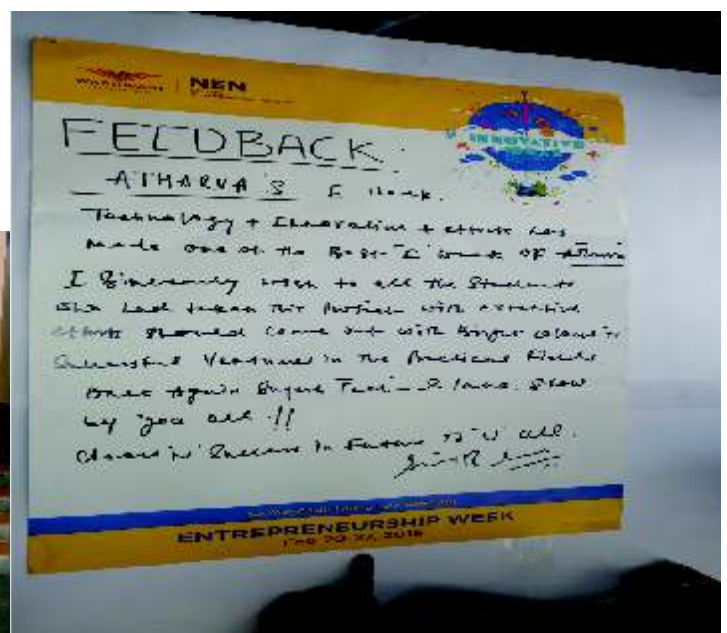 WADHWANI | NEN
INNOVATIVE
FEEDBACK
ATHARVA'S E Week.
Technology + Innovation + efforts has
made one of the Best "E" week of Atharva
I Sincerely wish to all the Students
who had taken this with
efforts should come out with Bright colours in
Successful Ventures in the Practical Fields
Once Again Superb Show
by you all !!
Success in Future to 'U' all.
ENTREPRENEURSHIP WEEK